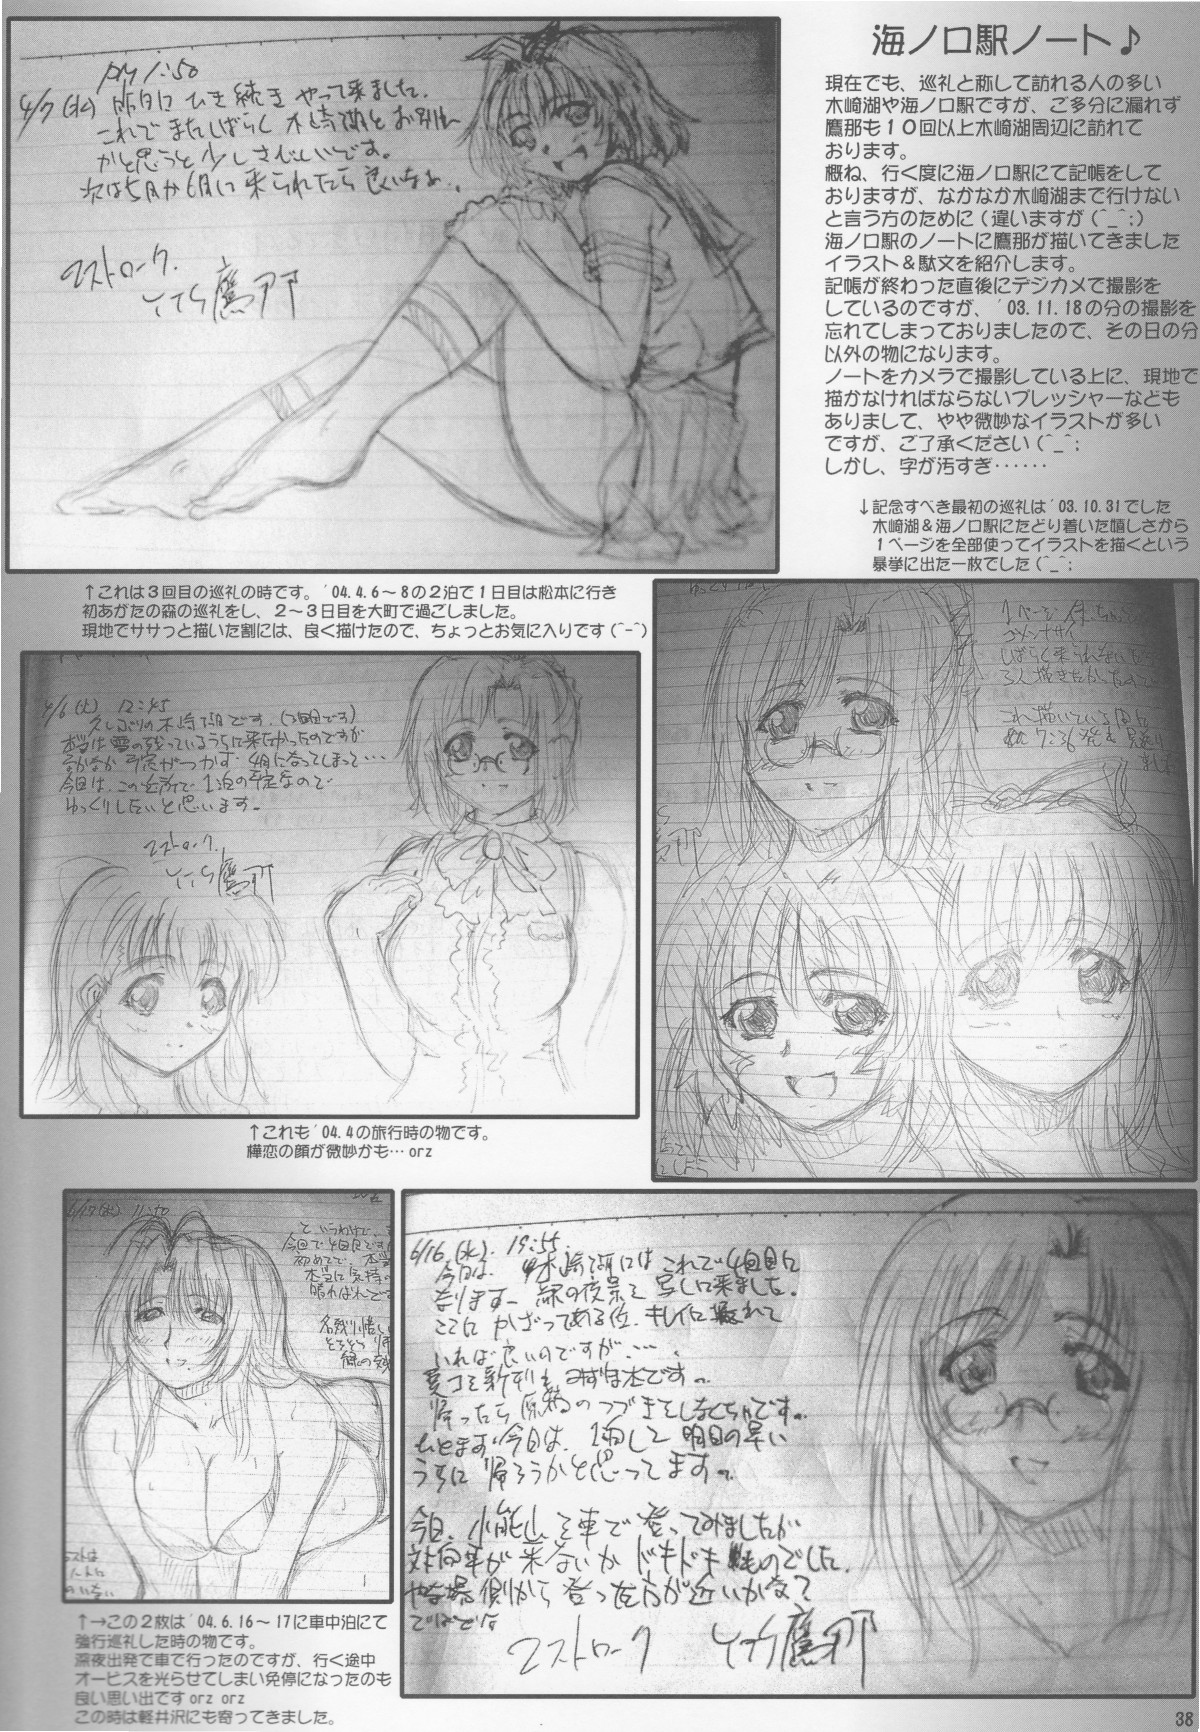 海ノ口駅ノート♪
現在でも、巡礼と称して訪れる人の多い
木崎湖や海ノ口駅ですが、ご多分に漏れず
鷹那も１０回以上木崎湖周辺に訪れて
おります。
概ね、行く度に海ノ口駅にて記帳をして
おりますが、なかなか木崎湖まで行けない
と言う方のために(違いますが(^_^;)
海ノ口駅のノートに鷹那が描いてきました
イラスト＆駄文を紹介します。
記帳が終わった直後にデジカメで撮影を
しているのですが、'03.11.18の分の撮影を
忘れてしまっておりましたので、その日の分
以外の物になります。
ノートをカメラで撮影している上に、現地で
描かなければならないプレッシャーなども
ありまして、やや微妙なイラストが多い
ですが、ご了承ください(^_^;
しかし、字が汚すぎ……
↓記念すべき最初の巡礼は'03.10.31でした
木崎湖＆海ノ口駅にたどり着いた嬉しさから
１ページを全部使ってイラストを描くという
暴挙に出た一枚でした(^_^;
PM 1:50
4/7(水) 昨日にひき続きやって来ました.
これでまたしばらく木崎湖とお別れ
かと思うと少しさびしいです。
次は5月か6月に来られたら良いなぁ..
2ストローク.
↑これは３回目の巡礼の時です。'04.4.6～8の２泊で１日目は松本に行き
初あがたの森の巡礼をし、２～３日目を大町で過ごしました。
現地でササっと描いた割には、良く描けたので、ちょっとお気に入りです(^-^)
4/6(火) 12:45
久しぶりの木崎湖です.(3回目です)
本当は雪の残っているうちに来たかったのですが
なかなか予定がつかず 4月になってしまって…
今日は、この近所で1泊の予定なので
ゆっくりしたいと思います.
2ストローク.
1ページ使っちゃって
ゴメンナサイ
しばらく来られない
3人描きたかったので
これ描いている間に
7:36発を見送り
ました
↑これも'04.4の旅行時の物です。
樺恋の顔が微妙かも…orz
6/17(木) 11:50
というわけで、
今回で4回目です
初めてで、本当
本当に気持
晴ればれで
名残り惜しい
そろそろ帰
6/16.(水). 19:55.
今日は、木崎湖にはこれで4回目に
なります. 緑の夜景を写しに来ました.
ここにかざってある位、キレイに撮れて
いれば良いのですが….
夏コミ新刊もみずほ本です.
帰ったら原稿のつづきをしなくちゃです.
ひとまず今日は、1泊して明日の早い
うちに帰ろうかと思ってます.
今日、小熊山を車で登ってみましたが
対向車が来ないかドキドキものでした.
やな場側から登った方が近いかな?
ではでは
2ストローク
↑→この２枚は'04.6.16～17に車中泊にて
強行巡礼した時の物です。
深夜出発で車で行ったのですが、行く途中
オービスを光らせてしまい免停になったのも
良い思い出ですorz orz
この時は軽井沢にも寄ってきました。
38